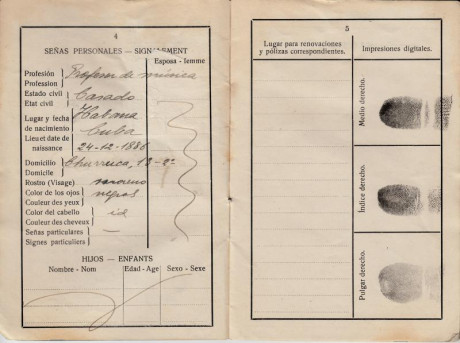 4
SEÑAS PERSONALES — SIGNALEMENT
Esposa - femme
Profesión Profesor de música
Profession
Estado civil Casado
Etat civil
Lugar y fecha Habana
de nacimiento Cuba
Lieu et date de
naissance 24-12-1886
Domicilio Churruca, 18-2º
Domicile
Rostro (Visage) moreno
Color de los ojos negros
Couleur des yeux
Color del cabello id
Couleur des cheveux
Señas particulares —
Signes particuliers
HIJOS — ENFANTS
Nombre - Nom Edad - Age Sexo - Sexe
5
Lugar para renovaciones
y pólizas correspondientes.
Impresiones digitales.
Medio derecho.
Índice derecho.
Pulgar derecho.